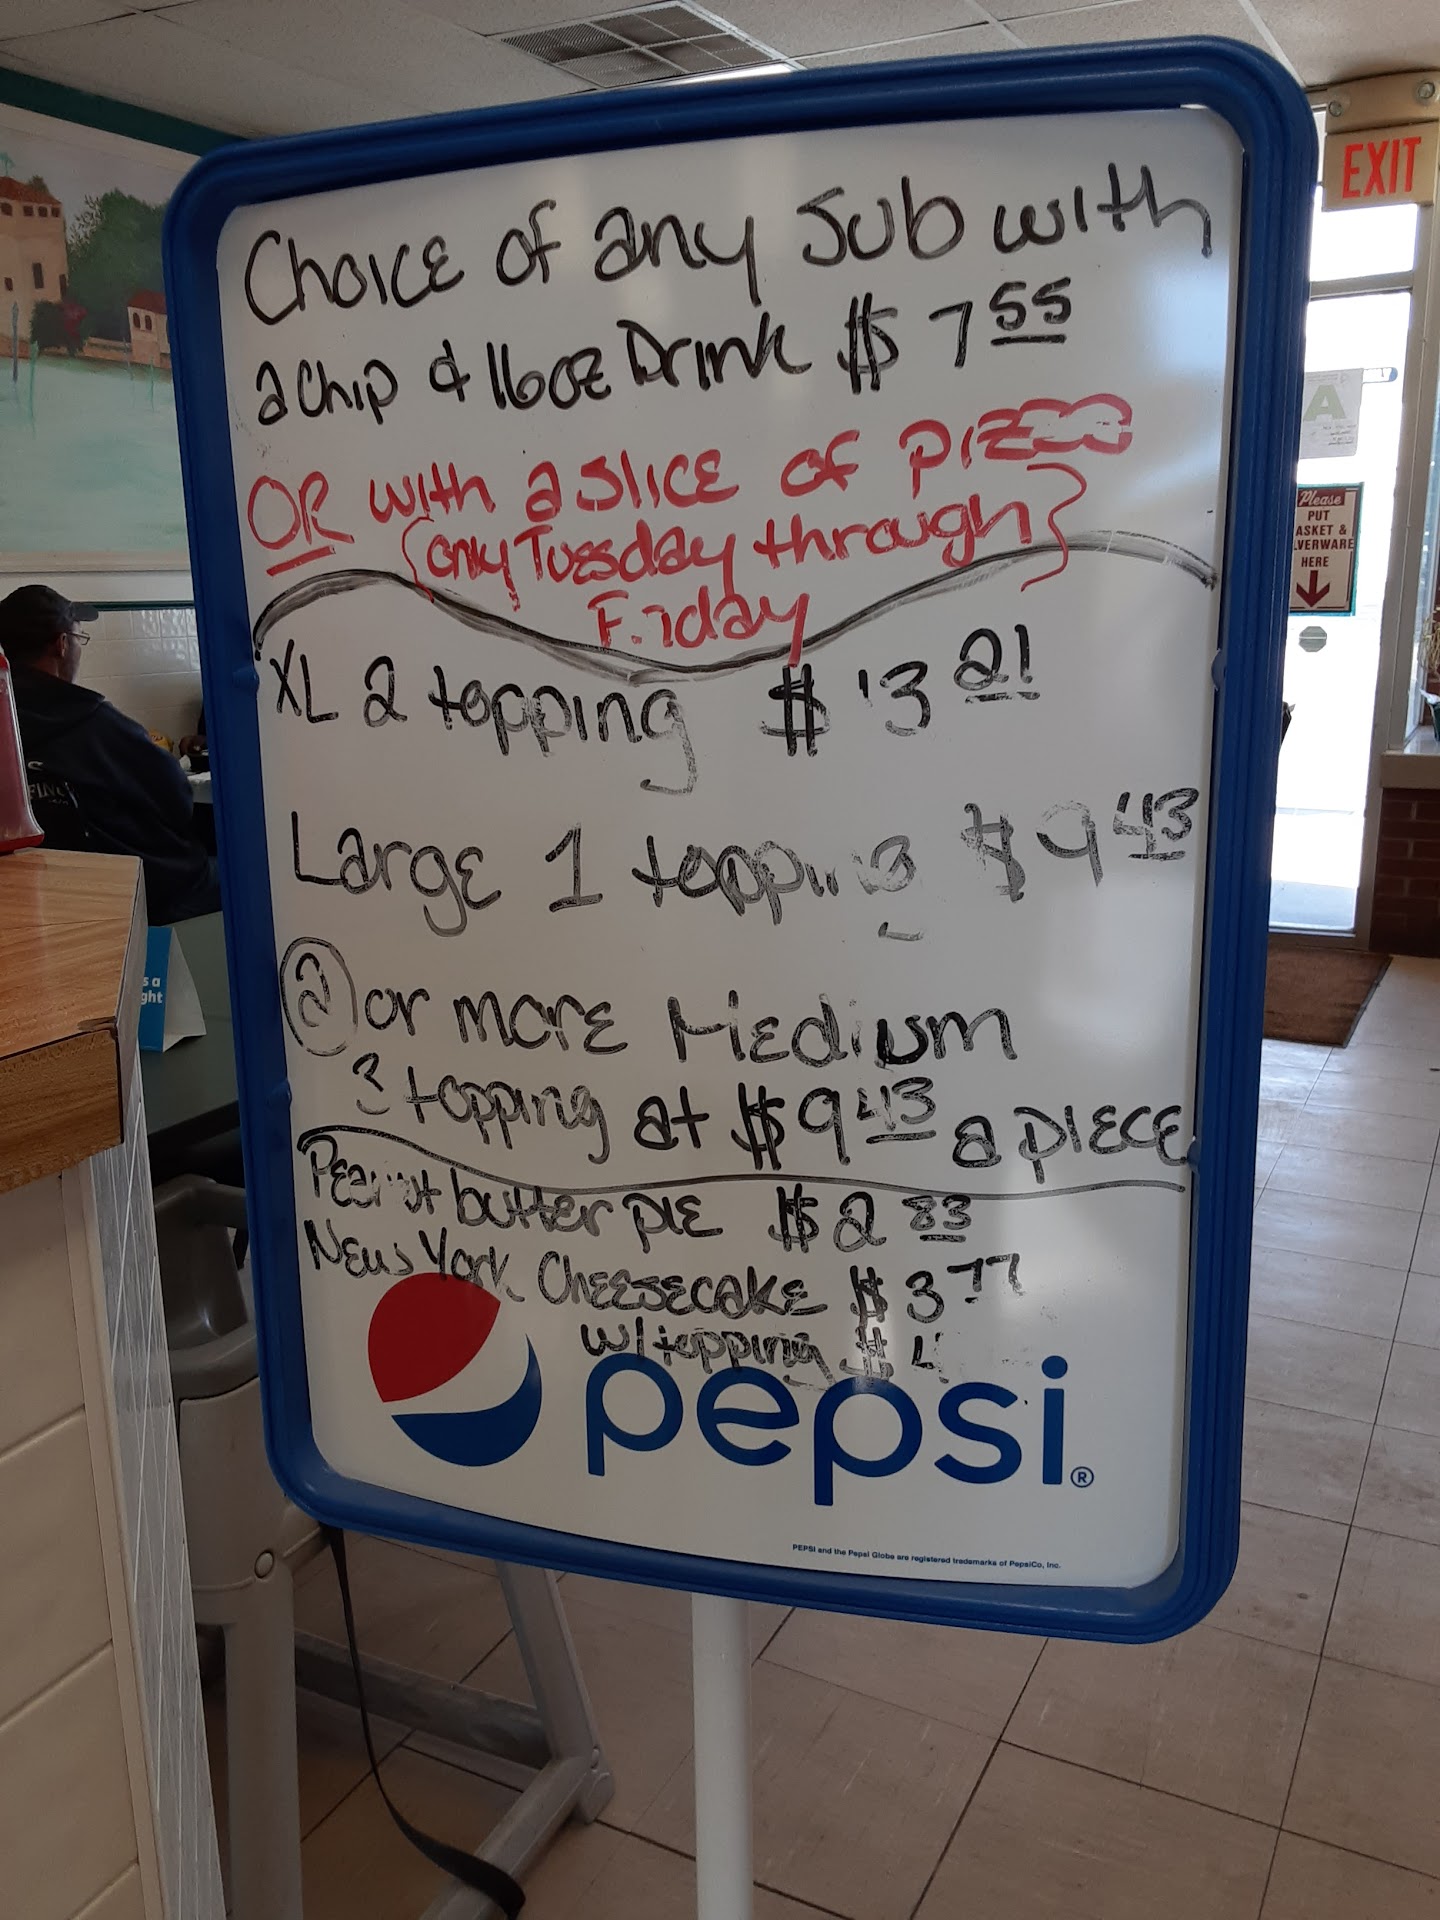 Choice of any Sub with
a chip & 16oz Drink $ 7 55
OR with a slice of pizza
(only Tuesday through
Friday
XL 2 topping $ 13 21
Large 1 topping $ 9 43
2 or more Medium
3 topping at $ 9 43 a piece
Peanut butter pie $ 2 83
New York Cheesecake $ 3 77
w/topping $ 4
pepsi®
PEPSI and the Pepsi Globe are registered trademarks of PepsiCo, Inc.
EXIT
A
Please
PUT
ASKET &
LVERWARE
HERE
s a
ght